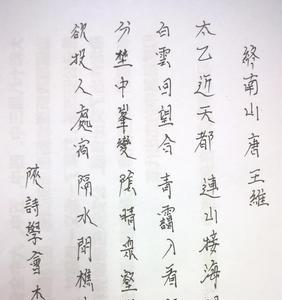 終南山唐王維
太乙近天都 連山接海
白雲回望合 青靄入看
分埜中峯變 陰晴衆壑
欲投人處宿 隔水問樵
陝詩學會